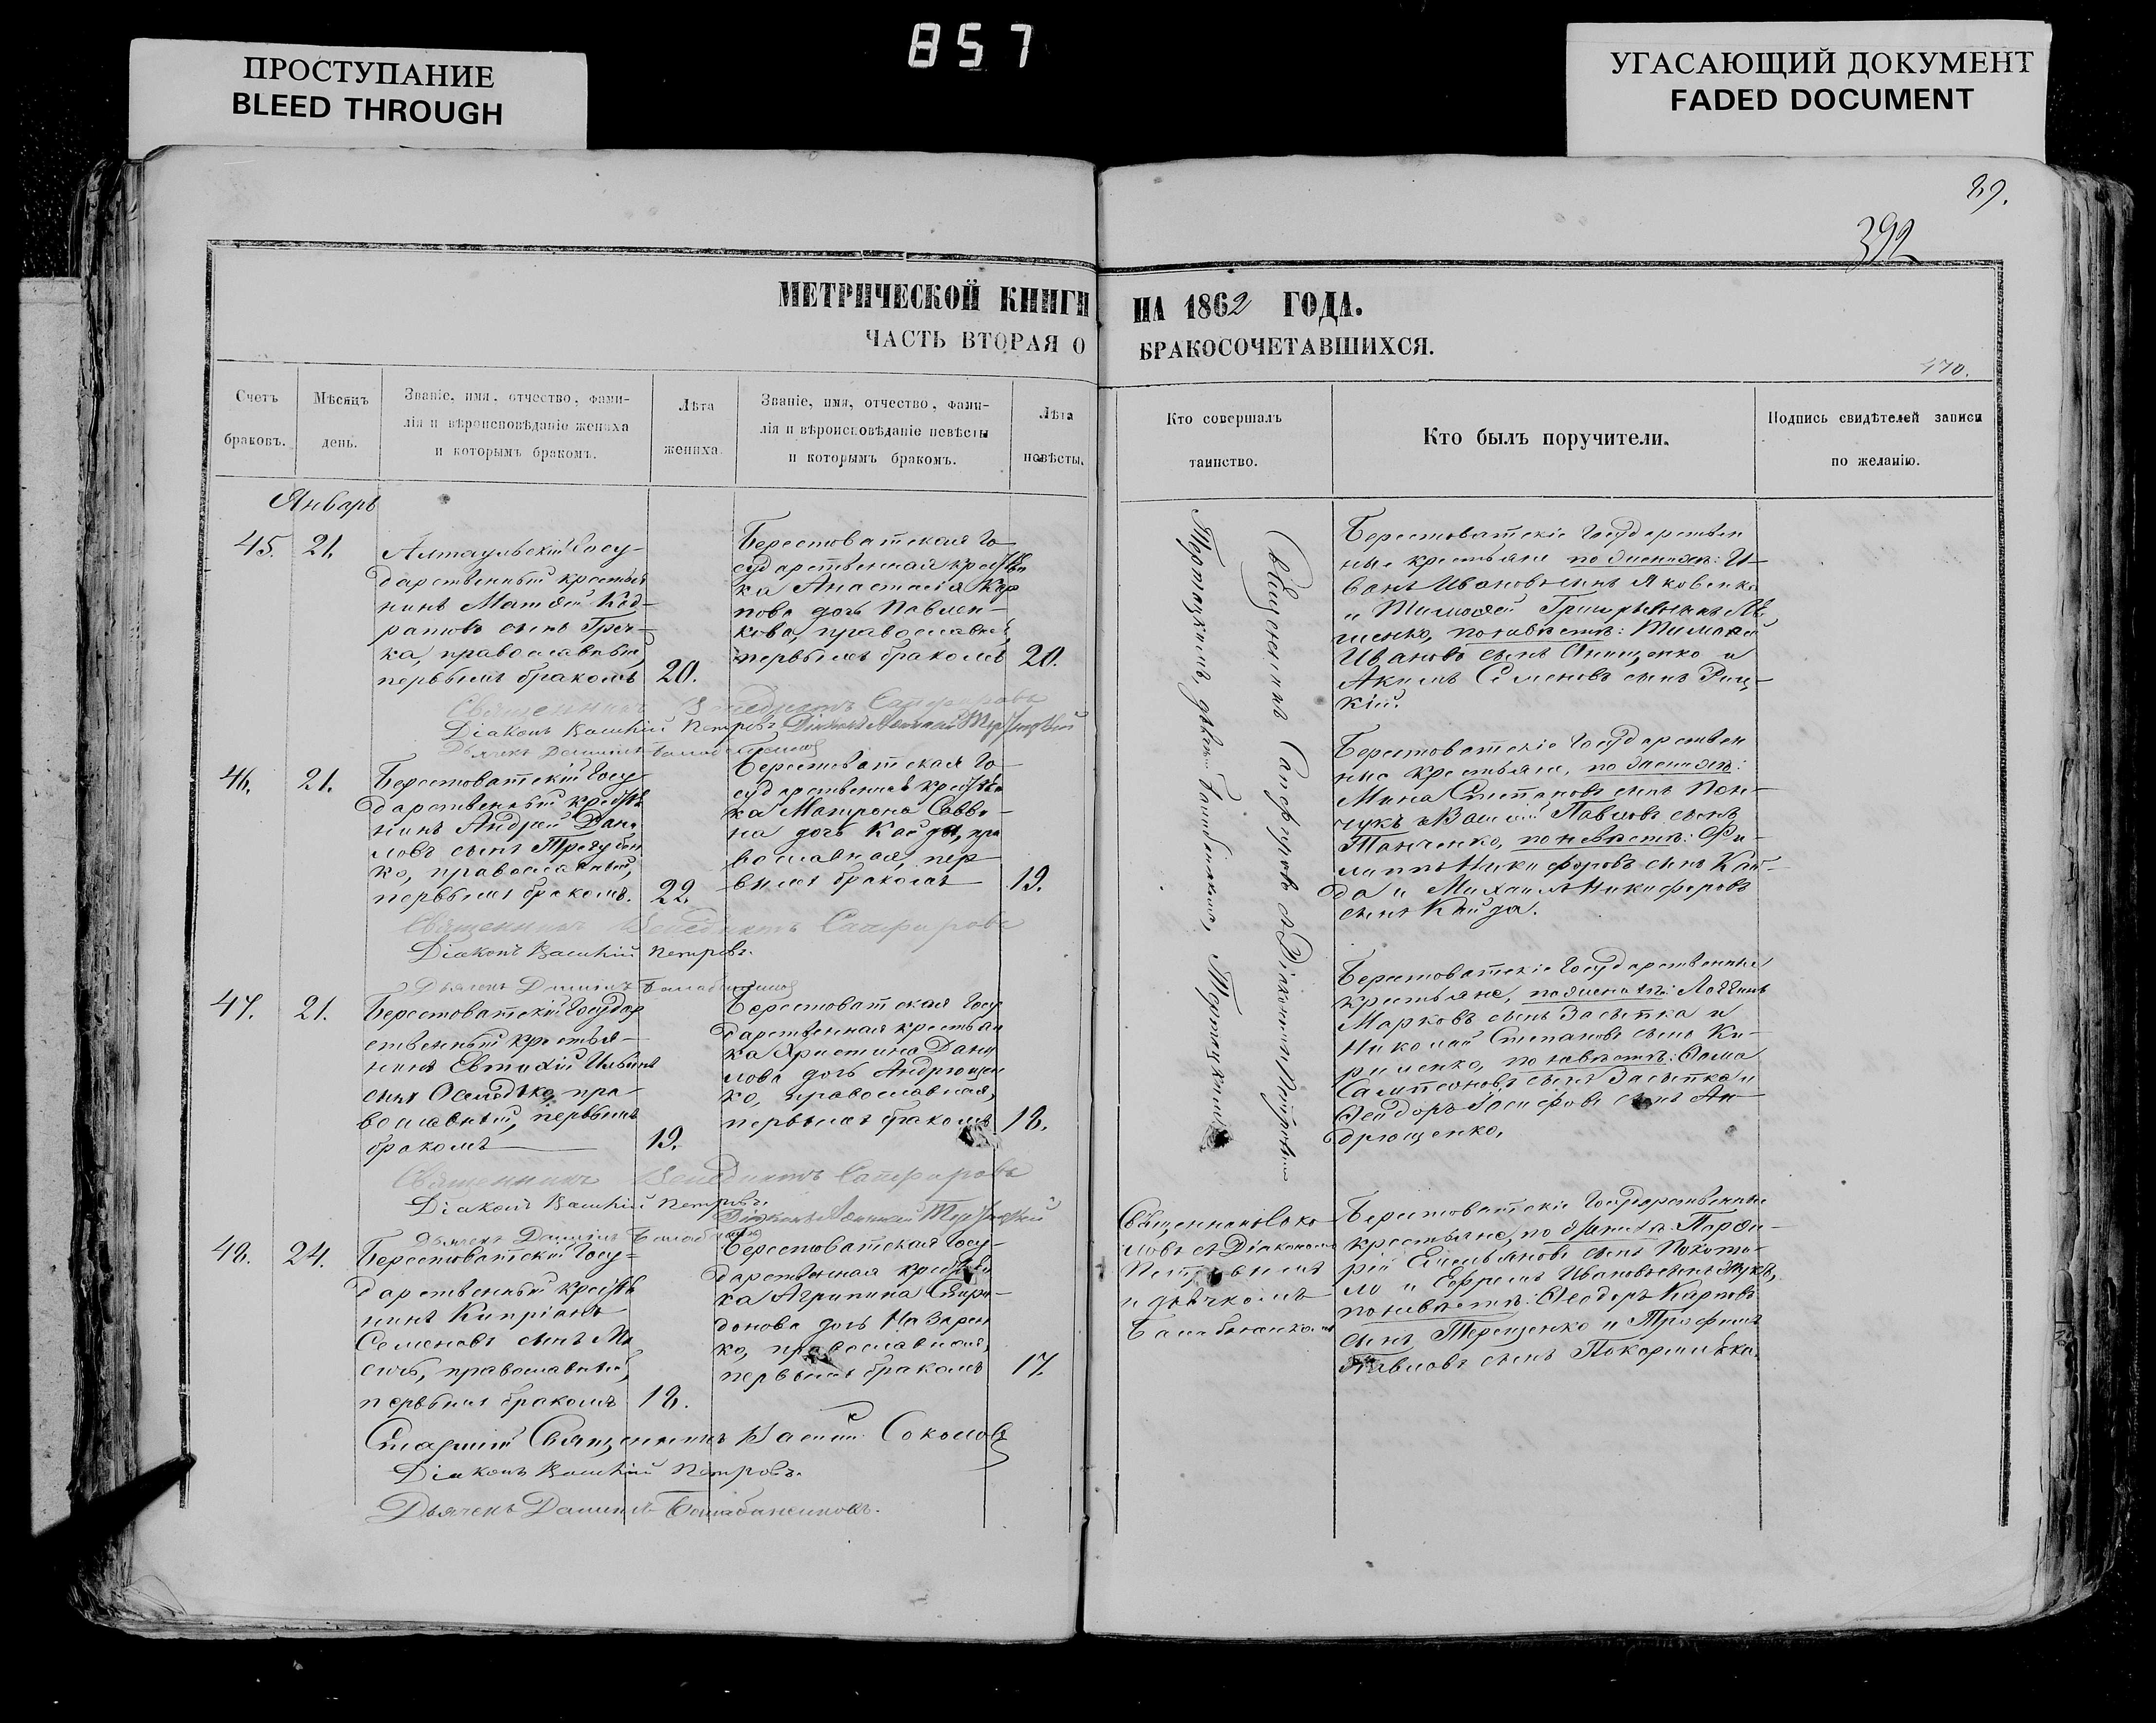 857
ПРОСТУПАНИЕ
BLEED THROUGH
УГАСАЮЩИЙ ДОКУМЕНТ
FADED DOCUMENT
89.
392
МЕТРИЧЕСКОЙ КНИГИ НА 1862 ГОДА.
ЧАСТЬ ВТОРАЯ О БРАКОСОЧЕТАВШИХСЯ.
170.
Счетъ
браковъ.
Мѣсяцъ
день.
Званіе, имя, отчество, фами-
лія и вѣроисповѣданіе жениха
и которымъ бракомъ.
Лѣта
жениха
Званіе, имя, отчество, фами-
лія и вѣроисповѣданіе невѣсты
и которымъ бракомъ.
Лѣта
невѣсты.
Кто совершалъ
таинство.
Кто былъ поручители.
Подпись свидѣтелей записи
по желанію.
Январь
45. 21.
Госу-
дарственный крестья
нинъ Матѳей Код-
ратовъ сынъ Греч-
ка, православный,
первымъ бракомъ 20.
Берестоватская Го
сударственная крестьян
ка Анастасія Кар
пова дочь Павлен-
кова, православная,
первымъ бракомъ 20.
Берестоватскіе Государствен
ные крестьяне по женихѣ: И-
ванъ Ивановъ сынъ Яковенко
и Тимоѳей Григорьевъ сынъ
по невѣстѣ: Тимоѳей
Ивановъ сынъ Онищенко и
Акимъ Семеновъ сынъ Риц-
кій.
Священникъ Венедиктъ Сапфировъ
Діаконъ Василій Петровъ.
Дьячекъ Даніилъ
46. 21.
Берестоватскій Госу-
дарственный крестья
нинъ Андрей Дани
ловъ сынъ
ко, православный,
первымъ бракомъ. 22.
Берестоватская Го-
сударственная крестьян
ка Матрона Савви-
на дочь Кайда, пра
вославная, пер
вымъ бракомъ 19.
Берестоватскіе Государствен
ные крестьяне, по женихѣ:
Мина Степановъ сынъ Пон-
чукъ и Василій Павловъ сынъ
по невѣстѣ: Фи-
липпъ Никифоровъ сынъ Кай-
да и Михаилъ Никифоровъ
сынъ Кайда.
Священникъ Венедиктъ Сапфировъ
Діаконъ Василій Петровъ.
Дьячекъ Даніилъ
47. 21.
Берестоватскій Государ
ственный крестья-
нинъ Евтихій Ильинъ
сынъ пра-
вославный, первымъ
бракомъ 19.
Берестоватская Госу
дарственная крестьян
ка Христина Дани
лова дочь Андрющен
ко, православная,
первымъ бракомъ 18.
Берестоватскіе Государственные
крестьяне, по женихѣ: Логгинъ
Марковъ сынъ Засыпка и
Николай Степановъ сынъ Ки-
риленко, по невѣстѣ: Ѳома
Сампсоновъ сынъ Засыпка и
Ѳеодоръ Іосифовъ сынъ Ан
дрющенко.
Священникъ Венедиктъ Сапфировъ
Діаконъ Василій Петровъ.
Дьячекъ Даніилъ
48. 24.
Берестоватскій Госу-
дарственный крестья
нинъ Кипріанъ
Семеновъ сынъ
православный,
первымъ бракомъ 18.
Берестоватская Госу-
дарственная крестьян
ка Агрипина Спири-
донова дочь Назарен
ко, православная,
первымъ бракомъ 17.
Священникъ Соко
ловъ съ Діакономъ
Петровымъ
и дьячкомъ
Берестоватскіе Государственные
крестьяне, по женихѣ: Порфи-
рій Емельяновъ сынъ Покоти-
ло и Ефремъ Ивановъ сынъ Жукъ,
по невѣстѣ: Ѳеодоръ Карповъ
сынъ Терещенко и Трофимъ
Павловъ сынъ
Старшій Священникъ Василій Соколовъ
Діаконъ Василій Петровъ.
Дьячекъ Даніилъ